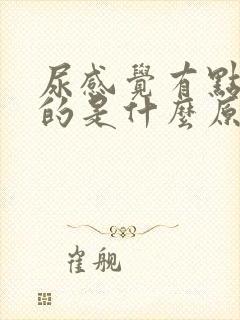 尿感覺有點
的是什麼原
崔舰